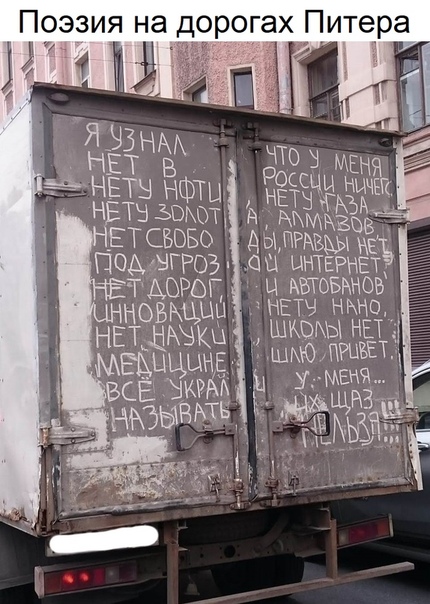 Поэзия на дорогах Питера
Я УЗНАЛ ЧТО У МЕНЯ
НЕТ В РОССИИ НИЧЕГО
НЕТУ НФТИ НЕТУ ГАЗА
НЕТУ ЗОЛОТА АЛМАЗОВ
НЕТ СВОБОДЫ, ПРАВДЫ НЕТ,
ПОД УГРОЗОЙ ИНТЕРНЕТ,
НЕТ ДОРОГ И АВТОБАНОВ
ИННОВАЦИЙ НЕТУ НАНО,
НЕТ НАУКИ ШКОЛЫ НЕТ
МЕДИЦИНЕ ШЛЮ ПРИВЕТ.
ВСЁ УКРАЛИ У МЕНЯ...
НАЗЫВАТЬ ИХ ЩАЗ
НЕЛЬЗЯ!!!